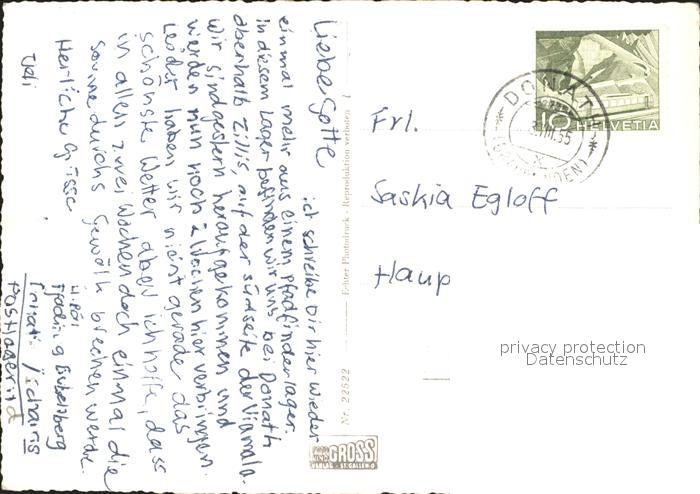 Liebe Gotte
ich schreibe Dir hier wieder
einmal mehr aus einem Pfadfinderlager,
in diesem Lager befinden wir uns bei Donath
oberhalb Zillis, auf der Südseite der Viamala.
Wir sind gestern heraufgekommen und
werden nun noch 2 Wochen hier verbringen.
Leider haben wir nicht gerade das
schönste Wetter aber ich hoffe, dass
in allen zwei Wochen doch einmal die
Sonne durchs Gewölk brechen werde.
Herliche Grüsse
Ueli
Postlagernd
Nr. 22522
Echter Photodruck - Reproduktion verboten
GROSS
VERLAG ST. GALLEN
DONATH
10 HELVETIA
Frl.
Saskia Egloff
Haup
privacy protection
Datenschutz